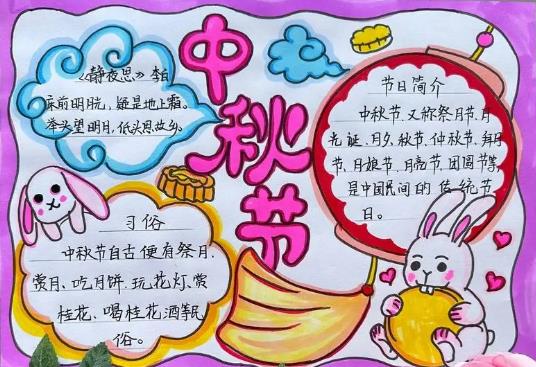 中秋节
《静夜思》 李白
床前明月光，疑是地上霜。
举头望明月，低头思故乡。
节日简介
中秋节、又称祭月节、月
光诞、月夕、秋节、仲秋节、拜月
节、月娘节、月亮节、团圆节等，
是中国民间的传统节
日。
习俗
中秋节自古便有祭月、
赏月、吃月饼、玩花灯、赏
桂花、喝桂花酒等民
俗。